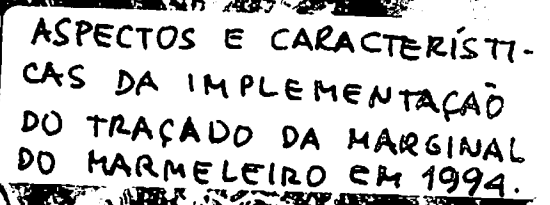 ASPECTOS E CARACTERÍSTI-
CAS DA IMPLEMENTAÇÃO
DO TRAÇADO DA MARGINAL
DO MARMELEIRO EM 1994.